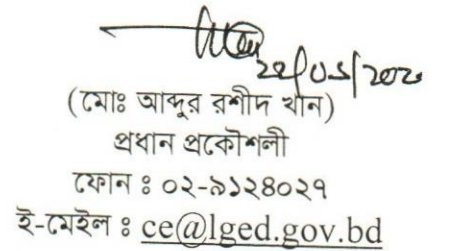 (মোঃ আব্দুর রশীদ খান)
প্রধান প্রকৌশলী
ফোন ঃ ০২-৯১২৪০২৭
ই-মেইল ঃ ce@lged.gov.bd